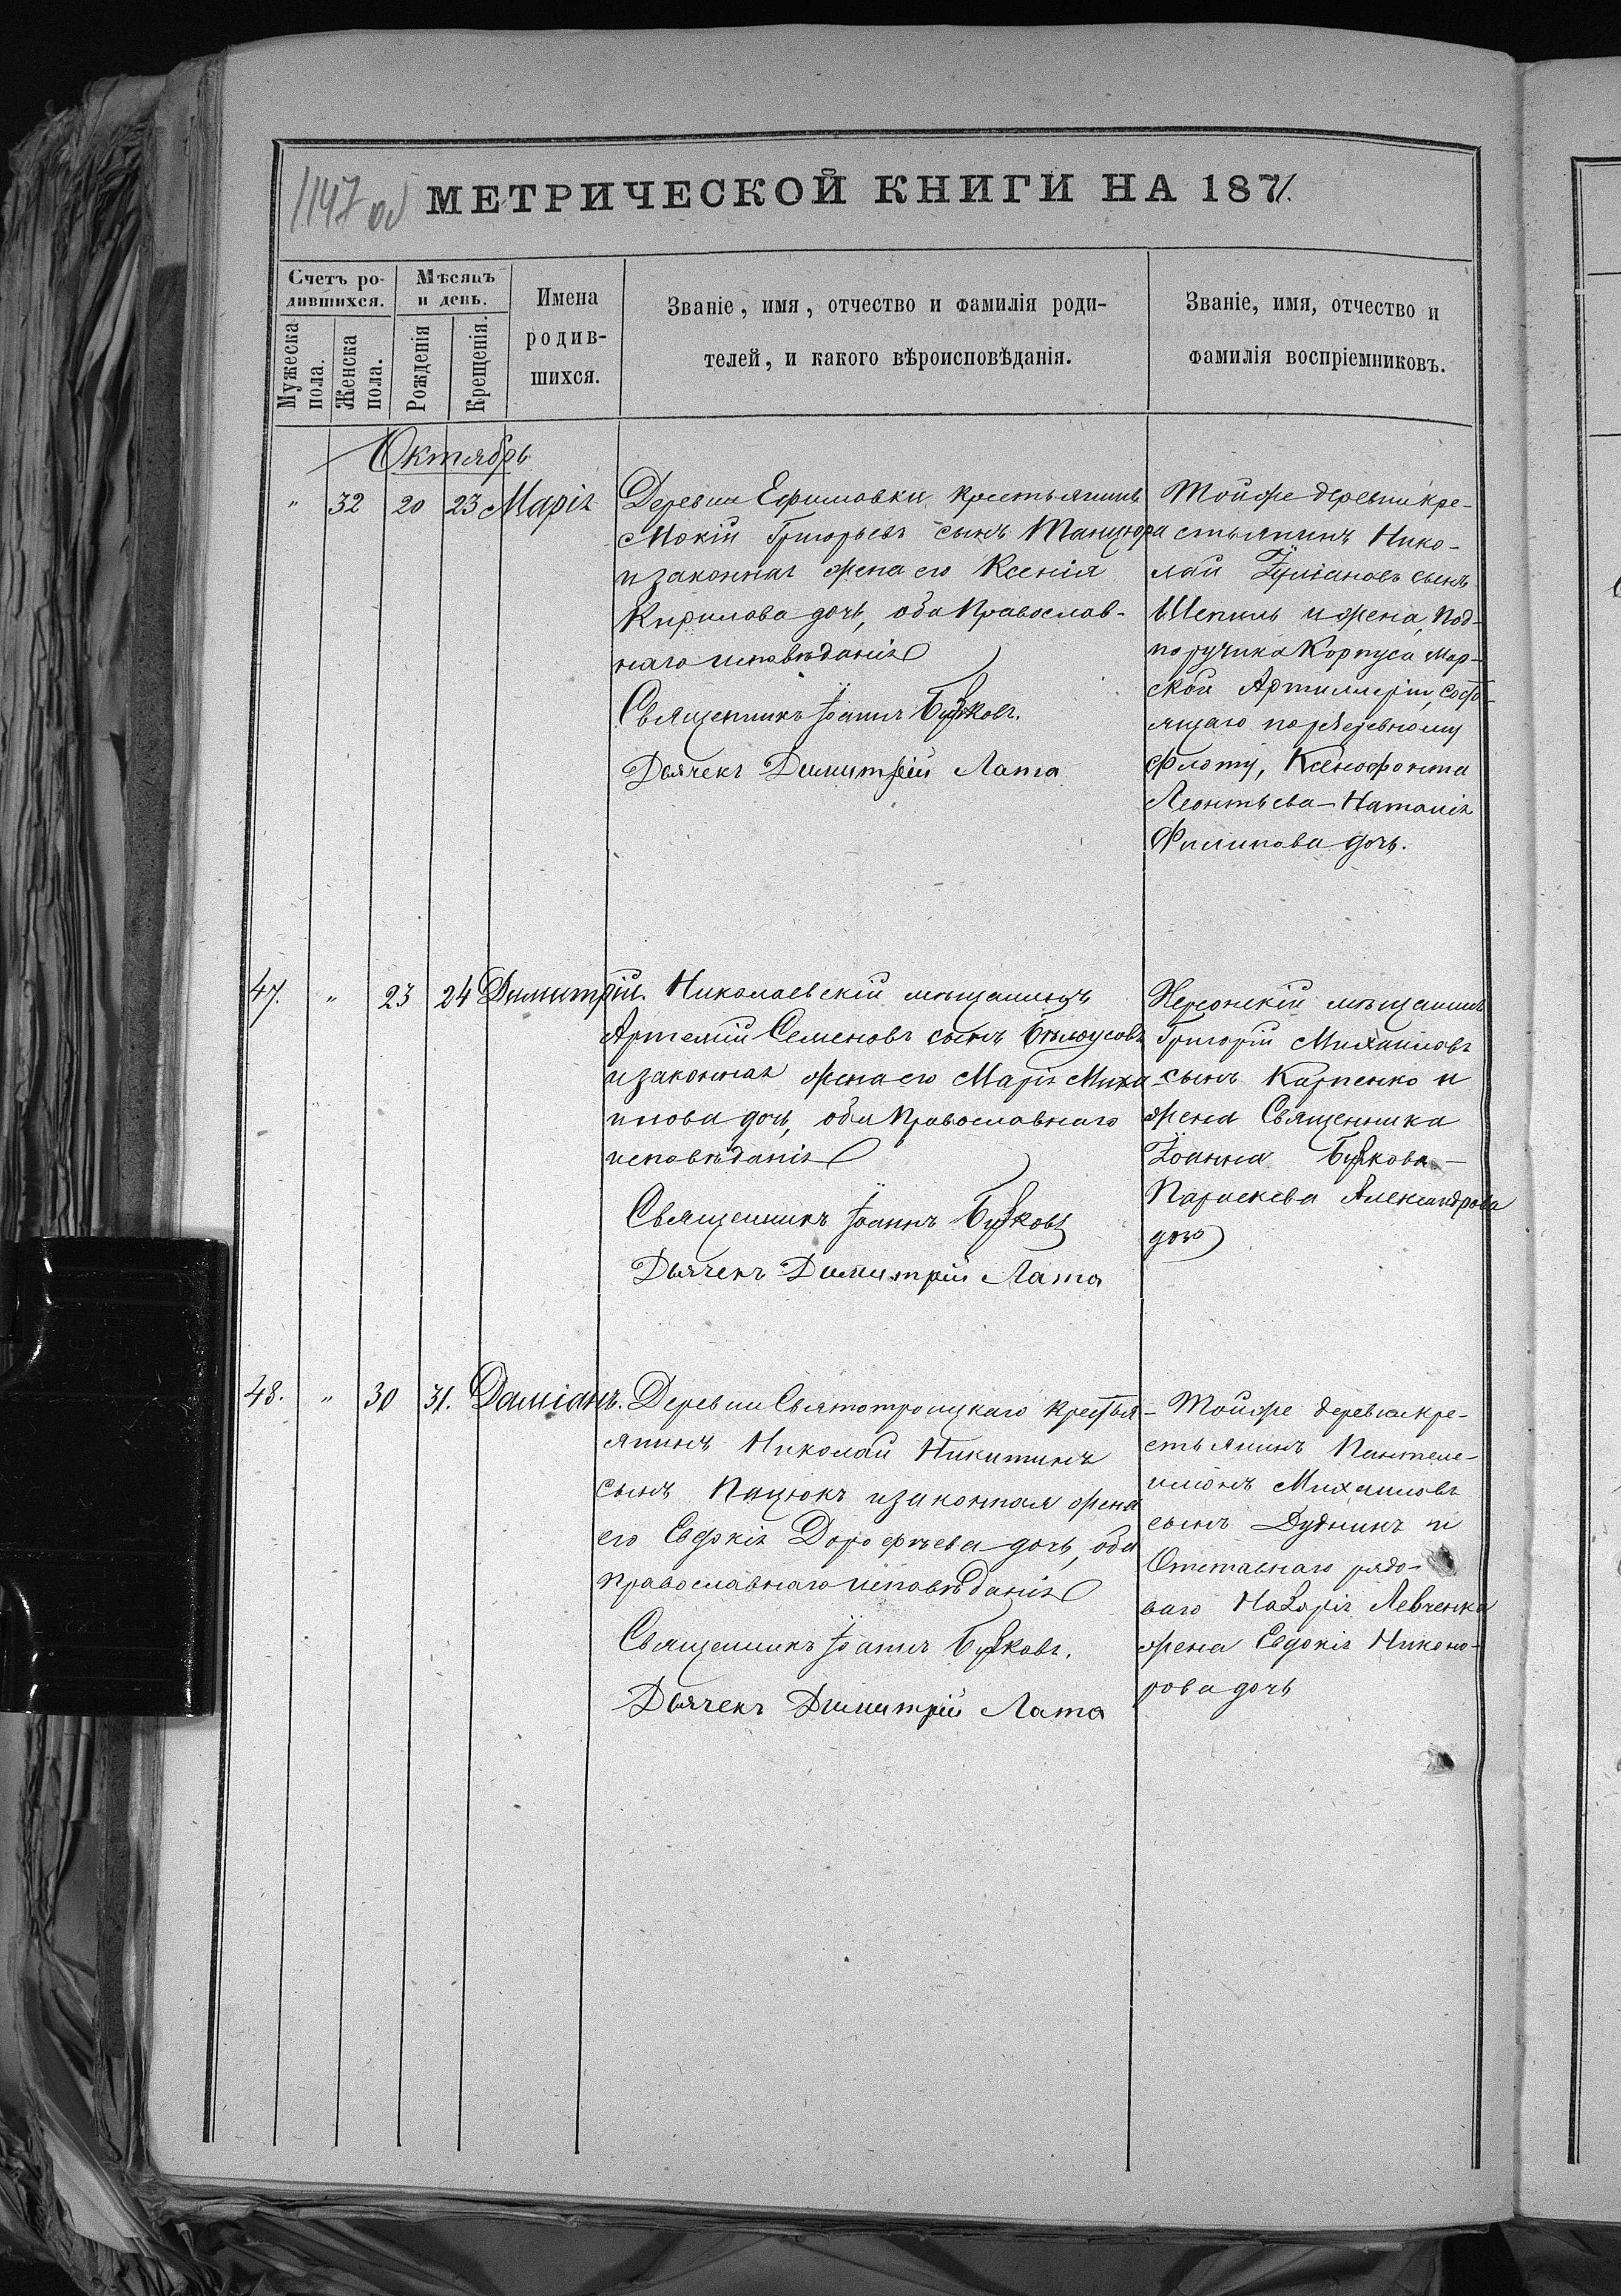 1147 об
МЕТРИЧЕСКОЙ КНИГИ НА 1871.
Счетъ ро-
дившихся.
Мѣсяцъ
и день.
Мужеска
пола.
Женска
пола.
Рожденія
Крещенія.
Имена
родив-
шихся.
Званіе, имя, отчество и фамилія роди-
телей, и какого вѣроисповѣданія.
Званіе, имя, отчество и
фамилія воспріемниковъ.
Октябрь
" 32 20 23 Марія
Деревни Ефимовки крестьянинъ
Мокій Григорьевъ сынъ Танцюра
и законная жена его Ксенія
Кирилова дочь, оба Православ-
наго исповѣданія
Священникъ Іоаннъ Бужковъ.
Дьячекъ Димитрій Лата
Тойже деревни кре-
стьянинъ Нико-
лай сынъ
Шепель и жена, Под-
поручика Корпуса Мор-
ской Артиллеріи, состо-
ящаго по резервному
флоту, Ксенофонта
Леонтьева – Наталія
Филипова дочь.
47. " 23 24 Димитрій.
Николаевскій мѣщанинъ
Артемій Семеновъ сынъ Бѣлоусовъ
и законная жена его Марія Миха-
илова дочь, оба Православнаго
исповѣданія
Священникъ Іоаннъ Бужковъ
Дьячекъ Димитрій Лата
Херсонскій мѣщанинъ
Григорій Михайловъ
сынъ Карпенко и
жена Священника
Іоанна Бужкова –
Параскева Александрова
дочь
48. " 30 31. Даміанъ.
Деревни Святотроицкаго крестья-
янинъ Николай Никитинъ
сынъ Пацюкъ и законная жена
его Евдокія Дорофѣева дочь, оба
православнаго исповѣданія
Священникъ Іоаннъ Бужковъ.
Дьячекъ Димитрій Лата
Тойже деревни кре-
стьянинъ Пантеле-
имонъ Михайловъ
сынъ Дудникъ и
Отставнаго рядо-
ваго Назарія Левченка
жена Евдокія Никано-
рова дочь